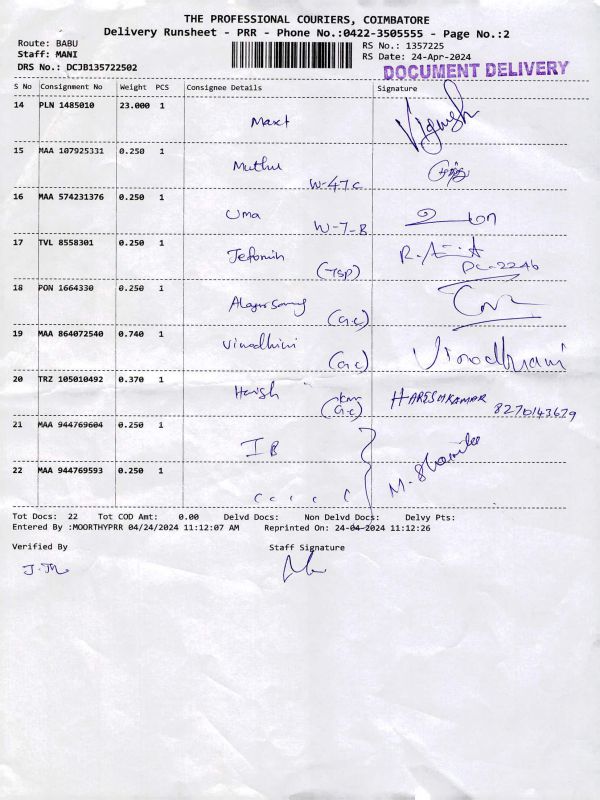 THE PROFESSIONAL COURIERS, COIMBATORE
Delivery Runsheet - PRR - Phone No.:0422-3505555 - Page No.:2
Route: BABU RS No.: 1357225
Staff: MANI RS Date: 24-Apr-2024
DRS No.: DCJB135722502 DOCUMENT DELIVERY
S No Consignment No Weight PCS Consignee Details Signature
14 PLN 1485010 23.000 1
15 MAA 107925331 0.250 1
Muthu
W-47c
16 MAA 574231376 0.250 1
Uma
W-7-B
17 TVL 8558301 0.250 1
(TSP) PC-2246
18 PON 1664330 0.250 1
(G.C)
19 MAA 864072540 0.740 1
Vinodhini
(G.C)
20 TRZ 105010492 0.370 1
Harish HARESHKUMAR
(G.C) 8270143679
21 MAA 944769604 0.250 1
IB
22 MAA 944769593 0.250 1
Tot Docs: 22 Tot COD Amt: 0.00 Delvd Docs: Non Delvd Docs: Delvy Pts:
Entered By :MOORTHYPRR 04/24/2024 11:12:07 AM Reprinted On: 24-04-2024 11:12:26
Verified By Staff Signature